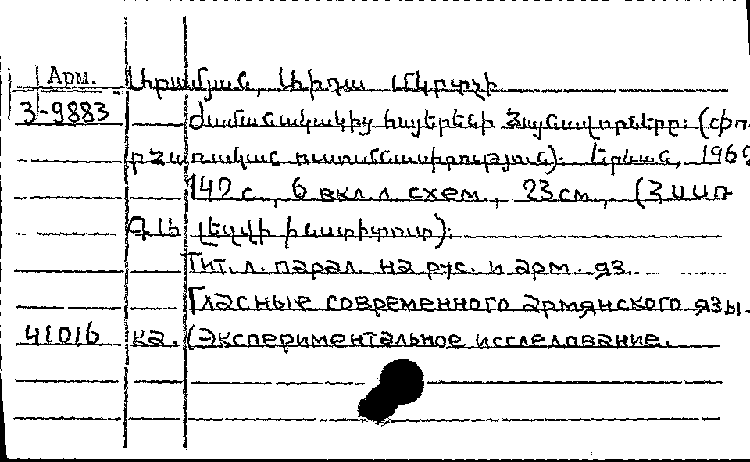 Арм. Լիրանյան, Լիդա Մկրտչի
3-9883 Ժամանակակից հայերենի ձայնավորները։ (փո-
րձառական ուսումնասիրություն)։ Երևան, 196
142 с., 6 вкл. л. схем., 23 см, (ՀՍՍՌ
ԳԱ լեզվի ինստիտուտ)։
Тит. л. парал. на рус. и арм. яз.
Гласные современного армянского язы-
41016 ка. (Экспериментальное исследование.